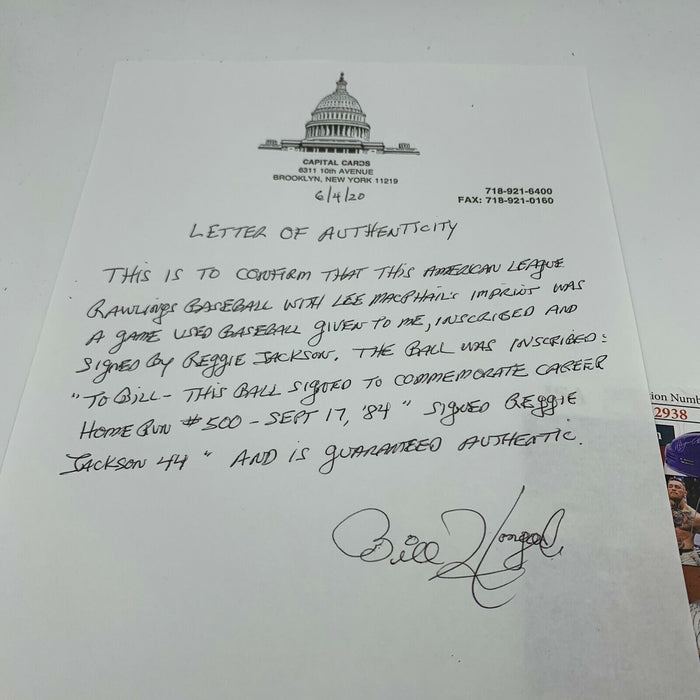 CAPITAL CARDS
6311 10th AVENUE
BROOKLYN, NEW YORK 11219
6/4/20
718-921-6400
FAX: 718-921-0160
LETTER OF AUTHENTICITY
THIS IS TO CONFIRM THAT THIS AMERICAN LEAGUE
RAWLINGS BASEBALL WITH LEE MACPHAIL'S IMPRINT WAS
A GAME USED BASEBALL GIVEN TO ME, INSCRIBED AND
SIGNED BY REGGIE JACKSON. THE BALL WAS INSCRIBED:
"TO BILL - THIS BALL SIGNED TO COMMEMORATE CAREER
HOME RUN #500 - SEPT 17, '84" SIGNED REGGIE
JACKSON 44" AND IS GUARANTEED AUTHENTIC.
Bill
ion Numb
2938